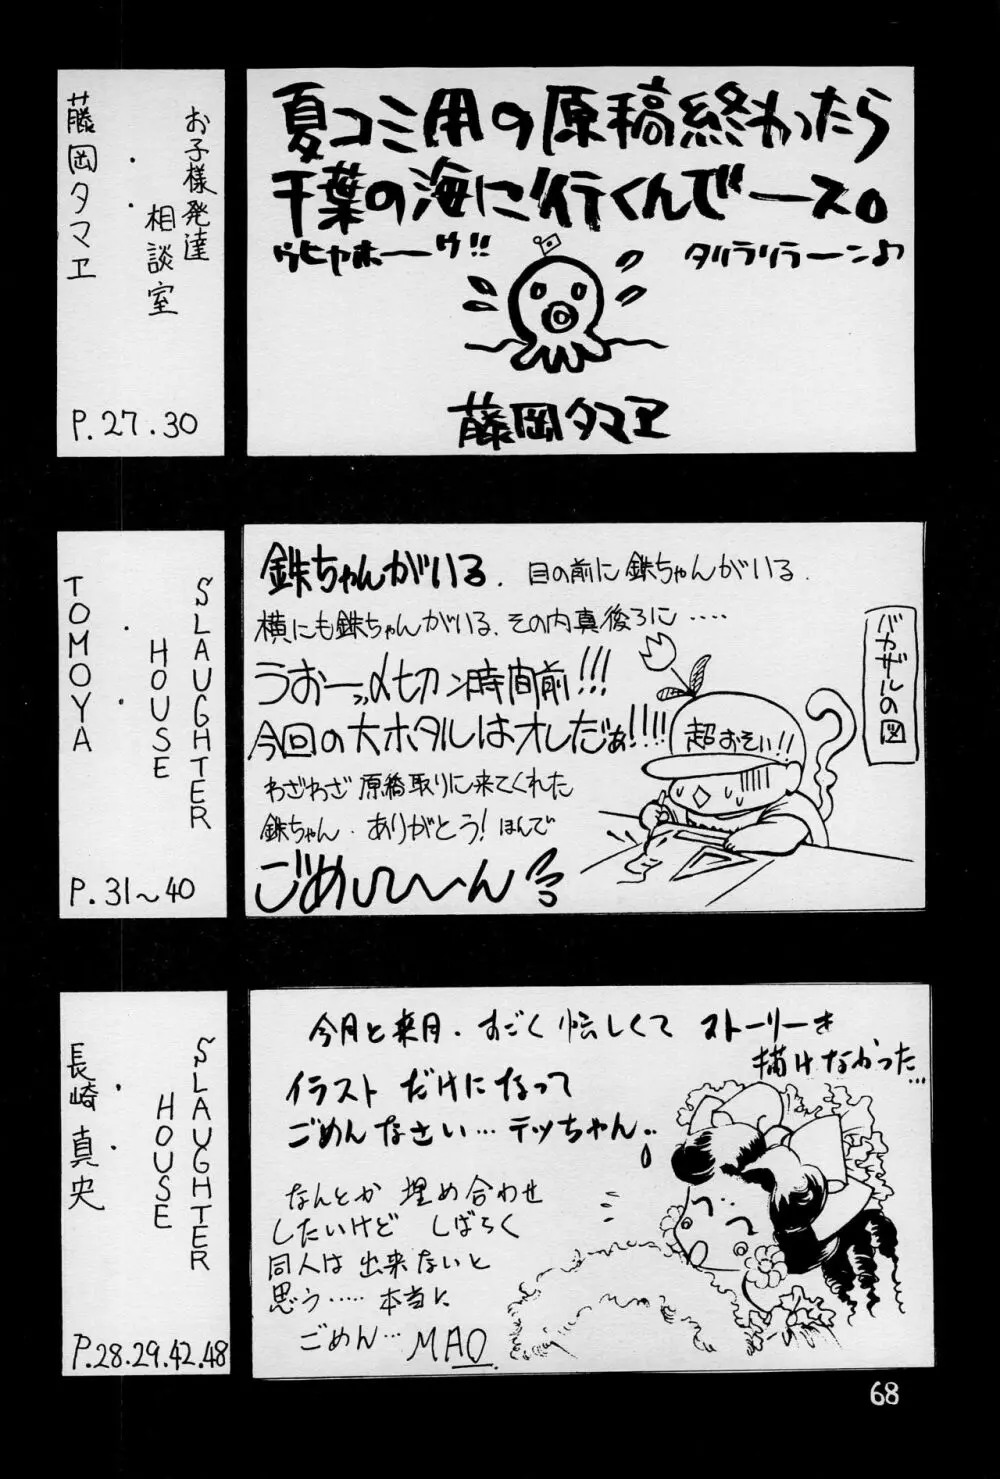 お子様発達
相談室
藤岡タマヱ
P.27.30
夏コミ用の原稿終わったら
千葉の海に行くんでース。
ウヒャホーーゥ!!
タリラリラーン♪
藤岡タマヱ
SLAUGHTER
HOUSE
TOMOYA
P.31～40
鉄ちゃんがいる。目の前に鉄ちゃんがいる.
横にも鉄ちゃんがいる、その内真後ろに‥‥
うおーッ〆切ン時間前!!!
今回の大ボタルはオレだぁ!!!!
わざわざ原稿取りに来てくれた
鉄ちゃん・ありがとう!ほんで
ごめし〜〜ん
バカザルの図
超おそい!!
SLAUGHTER
HOUSE
長崎真央
P.28.29.42.48
今月と来月・すごく忙しくてストーリーを
描けなかった…
イラストだけになって
ごめんなさい…テッちゃん..
なんとか埋め合わせ
したいけど しばらく
同人は出来ないと
思う‥‥‥本当に
ごめん… MAO
68